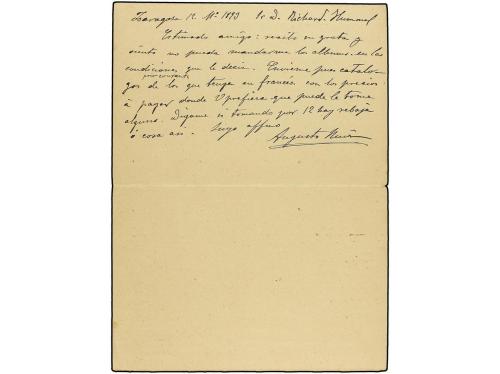 Zaragoza 12 Mº 1893 Sr D. Richard. Hummel
Estimado amigo: recibo su grata y
siento no pueda mandarme los albums en las
condiciones que le decia. Envieme pues catalo-
por corrents
gos de los que tenga en francés con los precios
á pagar donde V prefiera que puede le tome
alguno. Digame si tomando por 12 hay rebaja
ó cosa asi. Suyo affmo
Augusto